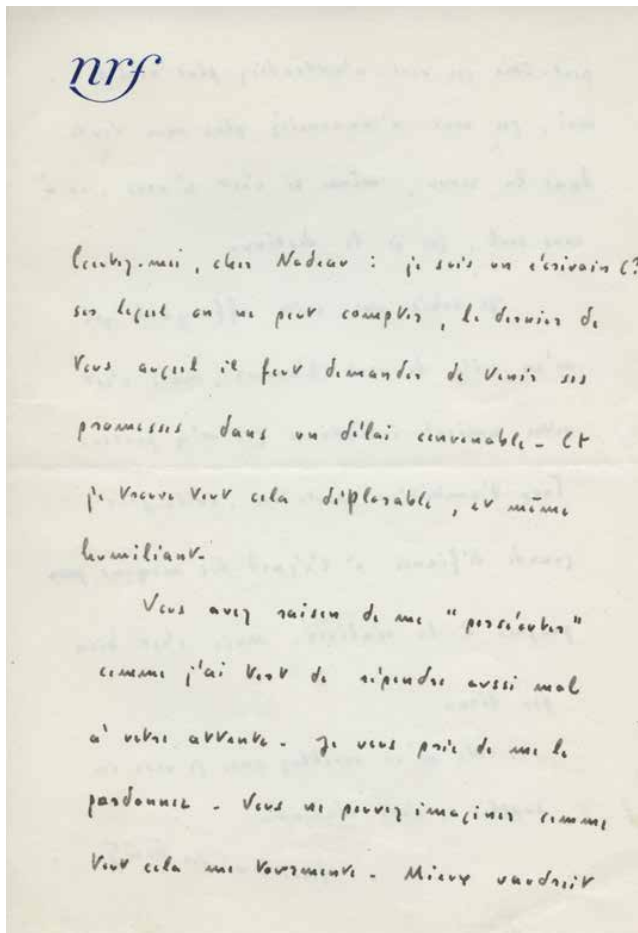 nrf
Écoutez-moi, cher Nadeau : je suis un écrivain (?)
sur lequel on ne peut compter, le dernier de
tous auquel il faut demander de tenir ses
promesses dans un délai convenable - Et
je trouve tout cela déplorable, et même
humiliant-
Vous avez raison de me "persécuter"
comme j'ai tort de répondre aussi mal
à votre attente - Je vous prie de me le
pardonner - Vous ne pouvez imaginer comme
tout cela me tourmente - Mieux vaudrait